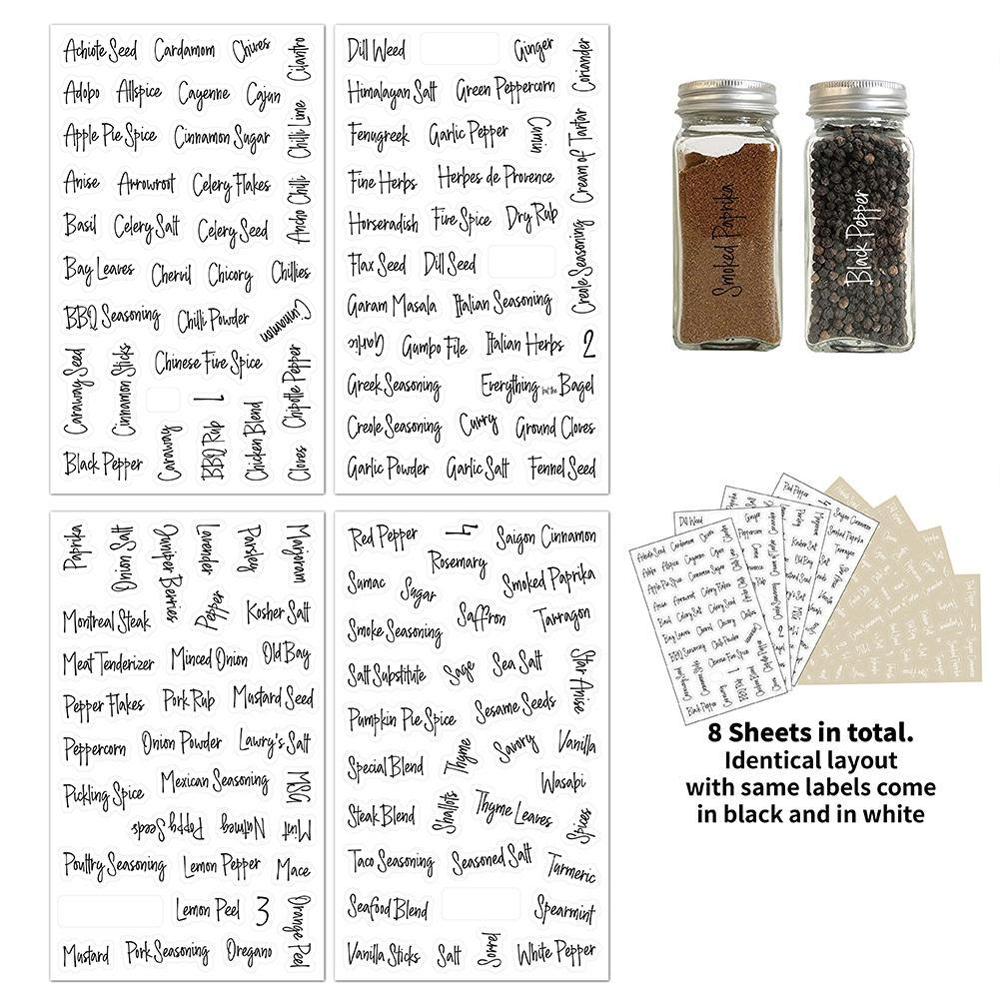 Achiote Seed Cardamom Chives Cilantro
Adobo Allspice Cayenne Cajun
Apple Pie Spice Cinnamon Sugar Chilli Lime
Anise Arrowroot Celery Flakes Ancho Chilli
Basil Celery Salt Celery Seed
Bay Leaves Chervil Chicory Chillies
BBQ Seasoning Chilli Powder Cinnamon
Caraway Seed Cinnamon Sticks Chinese Five Spice Chipotle Pepper
Black Pepper Caraway BBQ Rup 1 Chicken Blend Cloves
Dill Weed Ginger Coriander
Himalayan Salt Green Peppercorn
Fenugreek Garlic Pepper Cumin Cream of Tartar
Fine Herbs Herbes de Provence
Horseradish Five Spice Dry Rub
Flax Seed Dill Seed Creole Seasoning
Garam Masala Italian Seasoning
Garlic Gumbo File Italian Herbs 2
Greek Seasoning Everything but the Bagel
Creole Seasoning Curry Ground Cloves
Garlic Powder Garlic Salt Fennel Seed
Smoked Paprika
Black Pepper
Paprika Onion Salt Juniper Berries Lavender Parsley Marjoram
Montreal Steak Pepper Kosher Salt
Meat Tenderizer Minced Onion Old Bay
Pepper Flakes Pork Rub Mustard Seed
Peppercorn Onion Powder Lawry's Salt
Pickling Spice Mexican Seasoning MSG
Poppy Seeds Nutmeg Mint
Poultry Seasoning Lemon Pepper Mace
Lemon Peel 3 Orange Peel
Mustard Pork Seasoning Oregano
Red Pepper 4 Saigon Cinnamon
Rosemary
Sumac Sugar Smoked Paprika
Smoke Seasoning Saffron Tarragon
Salt Substitute Sage Sea Salt Star Anise
Pumpkin Pie Spice Sesame Seeds
Special Blend Thyme Savory Vanilla
Wasabi
Steak Blend Shallots Thyme Leaves Spices
Taco Seasoning Seasoned Salt Turmeric
Seafood Blend Spearmint
Vanilla Sticks Salt Sorrel White Pepper
8 Sheets in total.
Identical layout
with same labels come
in black and in white